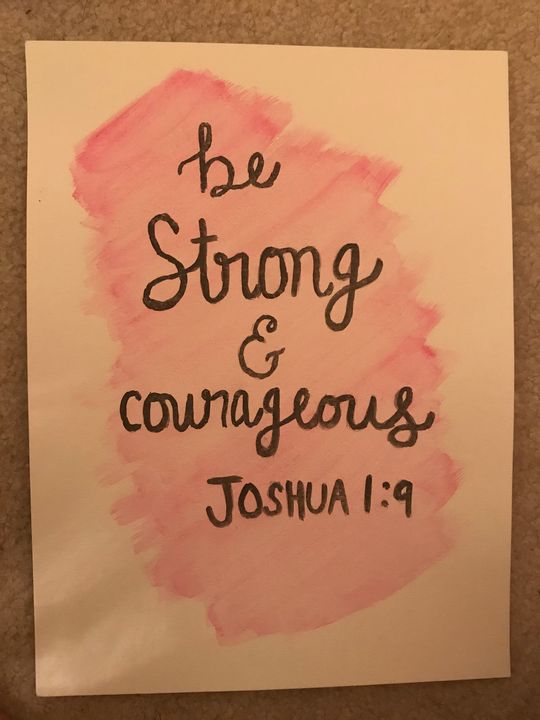 be
Strong
&
courageous
JOSHUA 1:9